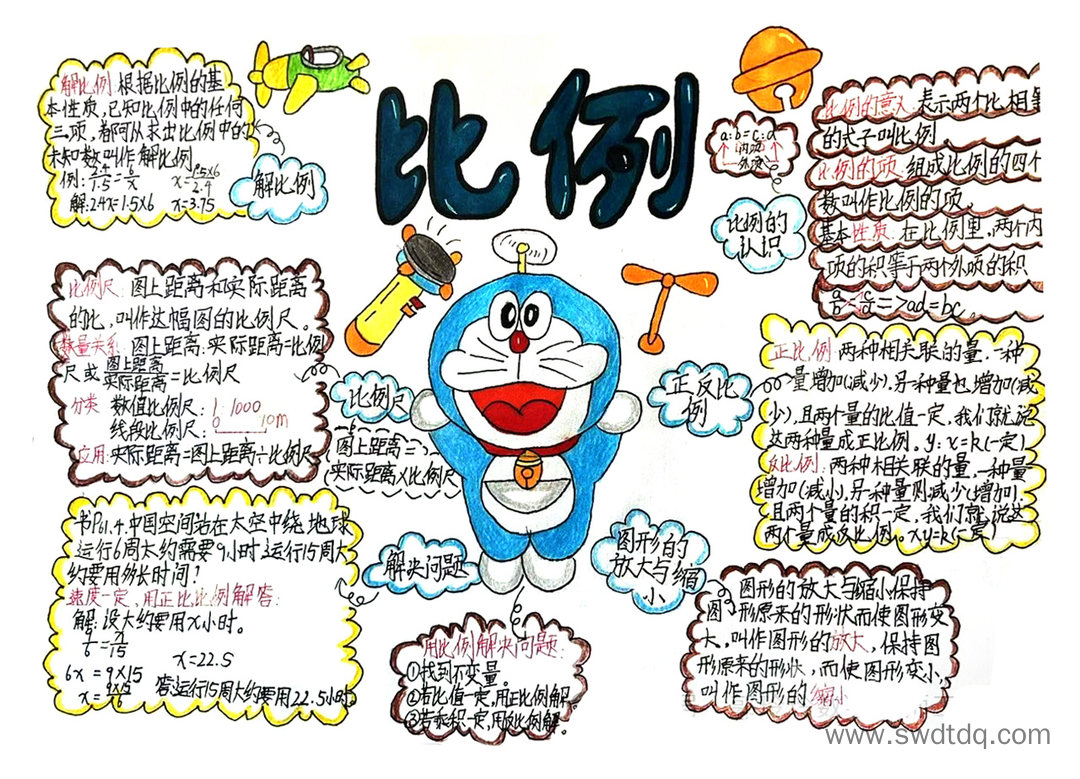 比例
解比例:根据比例的基
本性质,已知比例中的任何
三项,都可从求出比例中的
未知数叫作解比例
例: 2.4/1.5=6/x x=1.5x6/2.4
解:2.4x=1.5x6 x=3.75
解比例
a:b=c:d
内项
外项
比例的认识
比例的意义:表示两个比相等
的式子叫比例
比例的项:组成比例的四个
数叫作比例的项。
基本性质:在比例里,两个内
项的积等于两个外项的积
=>ad=bc。
比例尺:图上距离和实际距离
的比,叫作这幅图的比例尺。
数量关系:图上距离:实际距离=比例
尺或 图上距离/实际距离=比例尺
分类 数值比例尺:1:1000
线段比例尺: 0 10m
应用:实际距离=图上距离÷比例尺
比例尺
图上距离=
实际距离x比例尺
正反比
例
正比例:两种相关联的量,一种
量增加(减少),另一种量也增加(减
少),且两个量的比值一定,我们就说
这两种量成正比例。y:x=k(一定)
反比例:两种相关联的量,一种量
增加(减小),另一种量则减少(增加),
且两个量的积一定,我们就说这
两个量成反比例。xy=k(一定)
书P61.4.中国空间站在太空中绕地球
运行6周大约需要9小时运行15周大
约要用多长时间?
速度一定,用正比比例解答:
解:设大约要用x小时。
9/6=x/15
6x=9x15 x=22.5
x=9x15/6 答:运行15周大约要用22.5小时。
解决问题
用比例解决问题:
①找到不变量。
②若比值一定,用正比例解。
③若乘积一定,用反比例解。
图形的
放大与缩
小
图形的放大与缩小:保持
图形原来的形状而使图形变
大,叫作图形的放大,保持图
形原来的形状,而使图形变小,
叫作图形的缩小
www.swdtdq.com